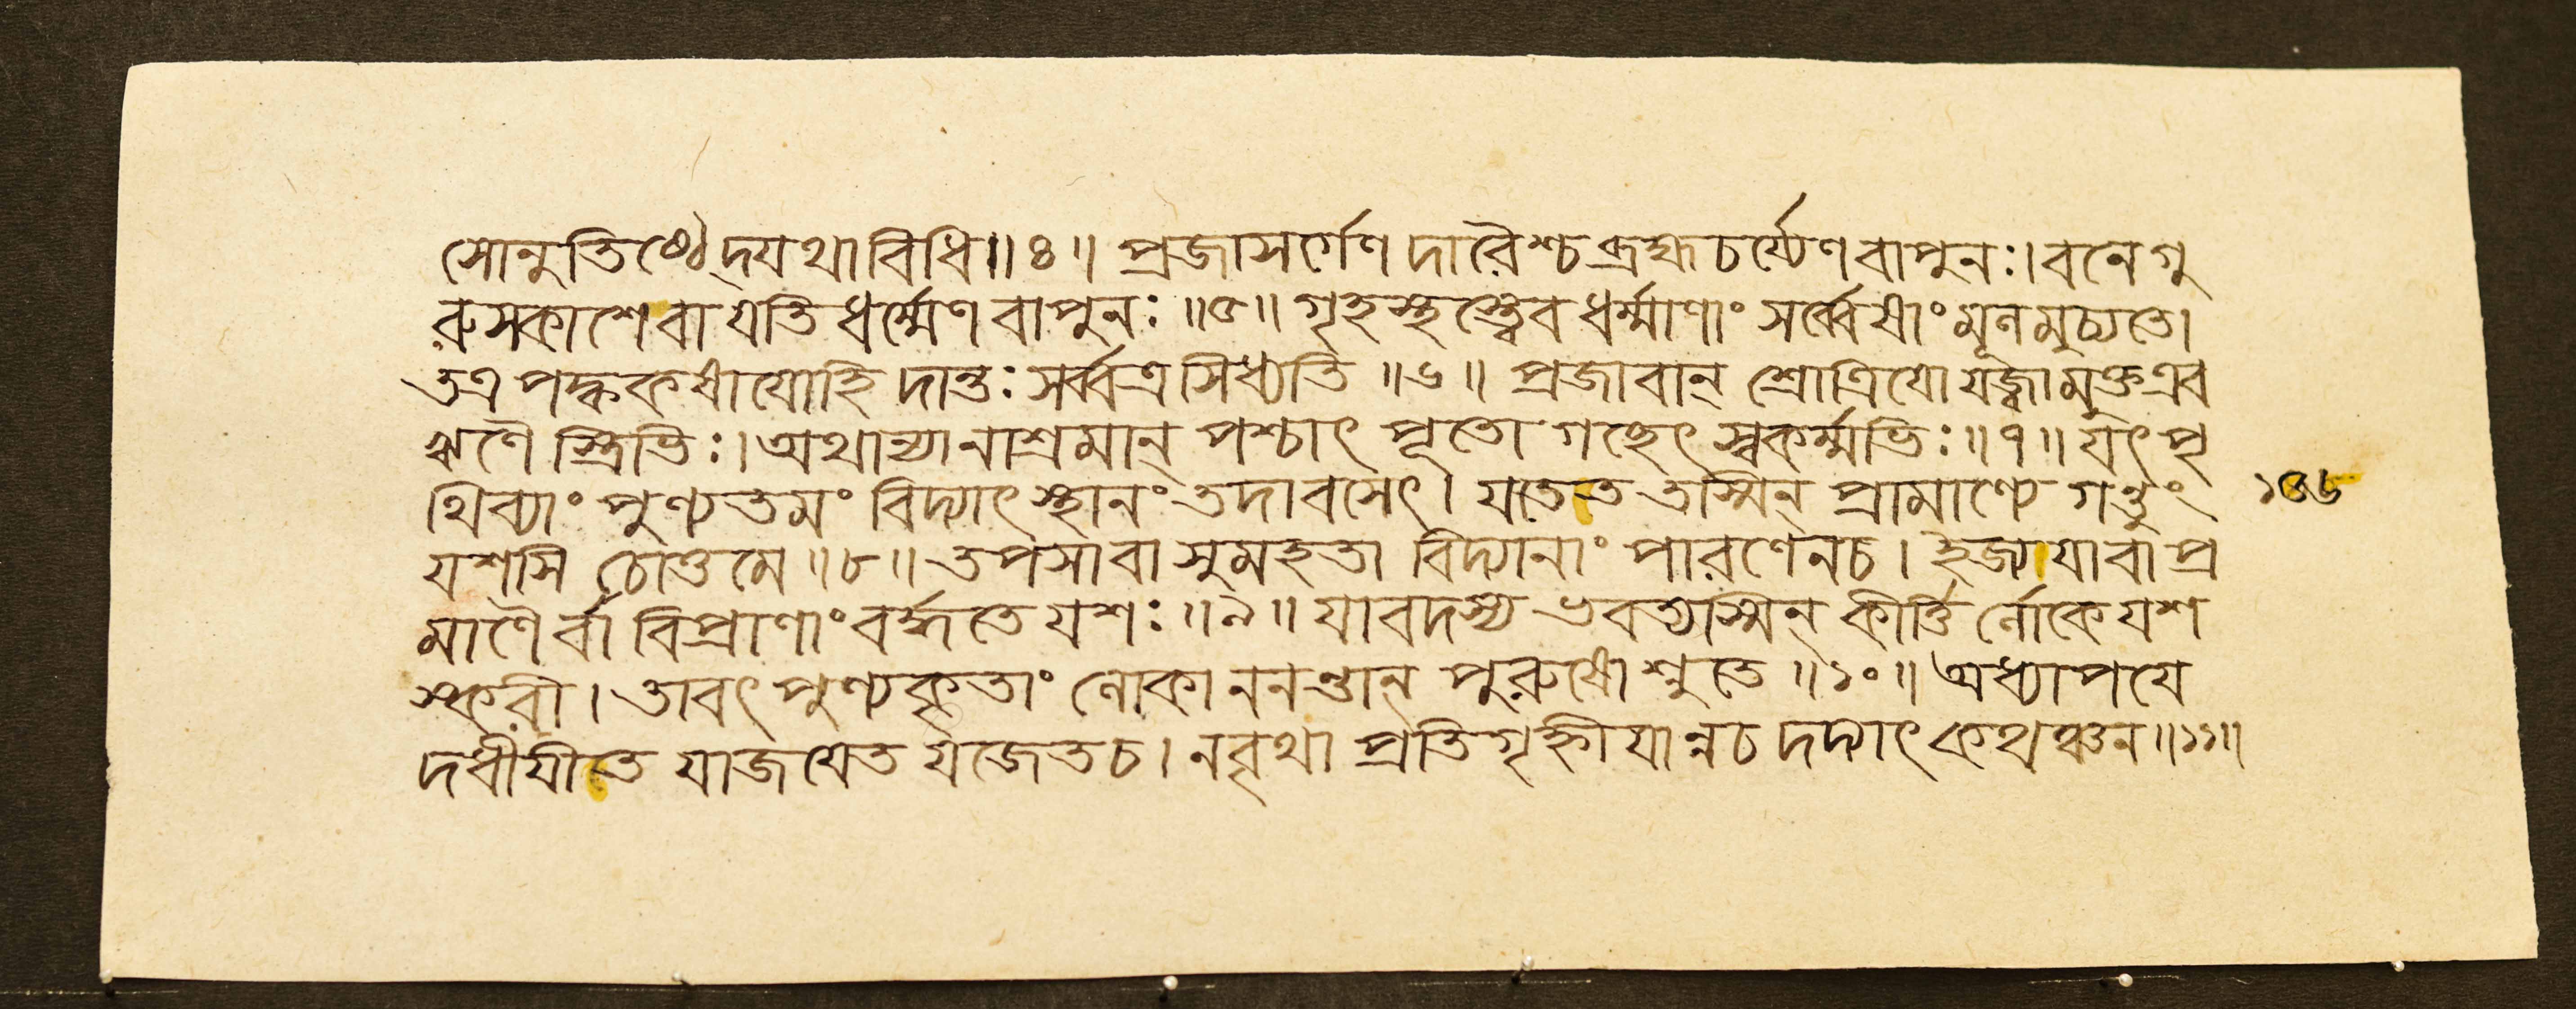 সোনুতিষ্ঠেদ্যথাবিধি॥৪॥ প্রজাসর্গেণ দারৈশ্চ ব্রহ্মচর্য্যেণ বা পুনঃ। বনে গু
রুসকাশে বা যতিধর্ম্মেণ বা পুনঃ॥৫॥ গৃহস্থস্ত্বেব ধর্ম্মাণাং সর্ব্বেষাং মূলমুচ্যতে।
তত্র পক্ককষাযোহি দান্তঃ সর্ব্বত্র সিধ্যতি॥৬॥ প্রজাবান্ শ্রোত্রিযো যজ্বা মুক্ত এব
ঋণৈ স্ত্রিভিঃ। অথান্যানাশ্রমান্ পশ্চাৎ পূতো গচ্ছেৎ স্বকর্ম্মভিঃ॥৭॥ যৎ পৃ
থিব্যাং পুণ্যতমং বিদ্যাৎ স্থানং তদাবসেৎ। যতেত তস্মিন্ প্রামাণ্যে গন্তুং
যশসি চোত্তমে॥৮॥ তপসা বা সুমহতা বিদ্যানাং পারণেন চ। ইজ্যাযা বা প্র
মাণৈর্বা বিপ্রাণাং বর্দ্ধতে যশঃ॥৯॥ যাবদস্য ভবত্যস্মিন্ কীর্ত্তি র্লোকে যশ
স্করী। তাবৎ পুণ্যকৃতাং লোকাননন্তান্ পুরুষোশ্নুতে॥১০॥ অধ্যাপযে
দধীযীত যাজযেত যজেত চ। ন বৃথা প্রতিগৃহ্ণীযান্ন চ দদ্যাৎ কথঞ্চন॥১১॥